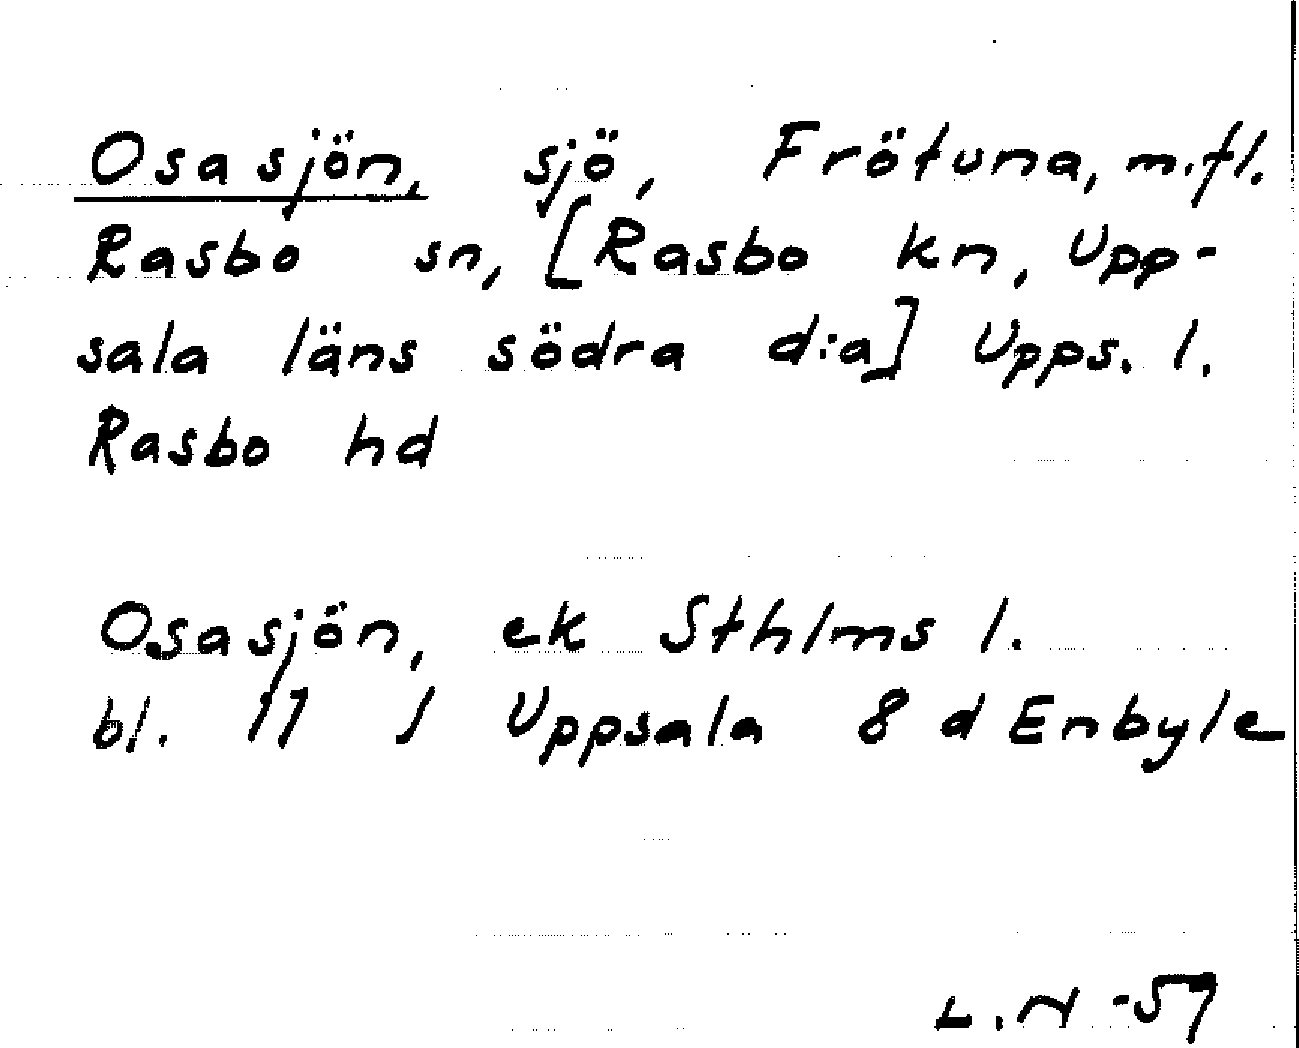 Osasjön, sjö, Frötuna, m.fl.
Rasbo sn, [Rasbo kn, Upp-
sala läns södra d:a] Upps. l.
Rasbo hd
Osasjön, ek Sthlms l.
bl. 11 J Uppsala 8 d Enbyle
L.N -57